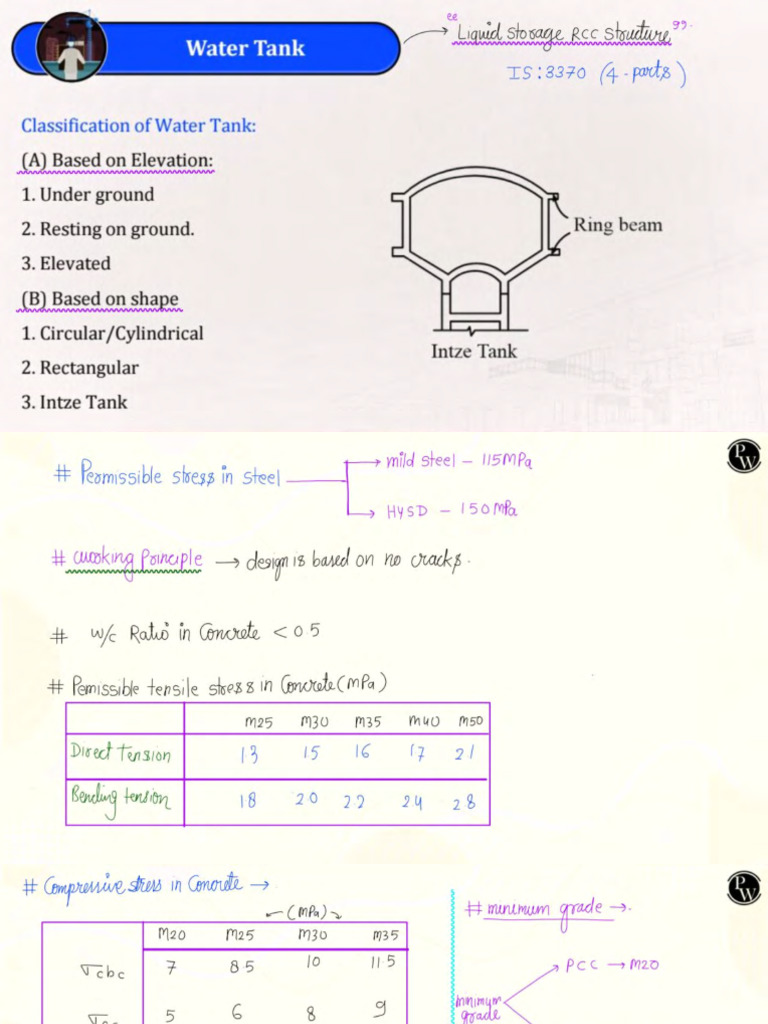 Water Tank
"Liquid storage RCC Structure".
IS:3370 (4-parts)
Classification of Water Tank:
(A) Based on Elevation:
1. Under ground
2. Resting on ground.
3. Elevated
(B) Based on shape
1. Circular/Cylindrical
2. Rectangular
3. Intze Tank
Ring beam
Intze Tank
PW
# Permissible stress in steel
mild steel - 115MPa
HYSD - 150MPa
# working Principle → design is based on no cracks.
# w/c Ratio in Concrete < 0 5
# Pemissible tensile stress in Concrete (MPa)
M25 M30 M35 M40 M50
Direct Tension 13 15 16 17 21
Bending tension 18 20 22 24 28
# Compressive stress in Concrete →
PW
(MPa)
M20 M25 M30 M35
σcbc 7 85 10 11.5
5 6 8 9
# minimum grade →
PCC → M20
minimum
grade